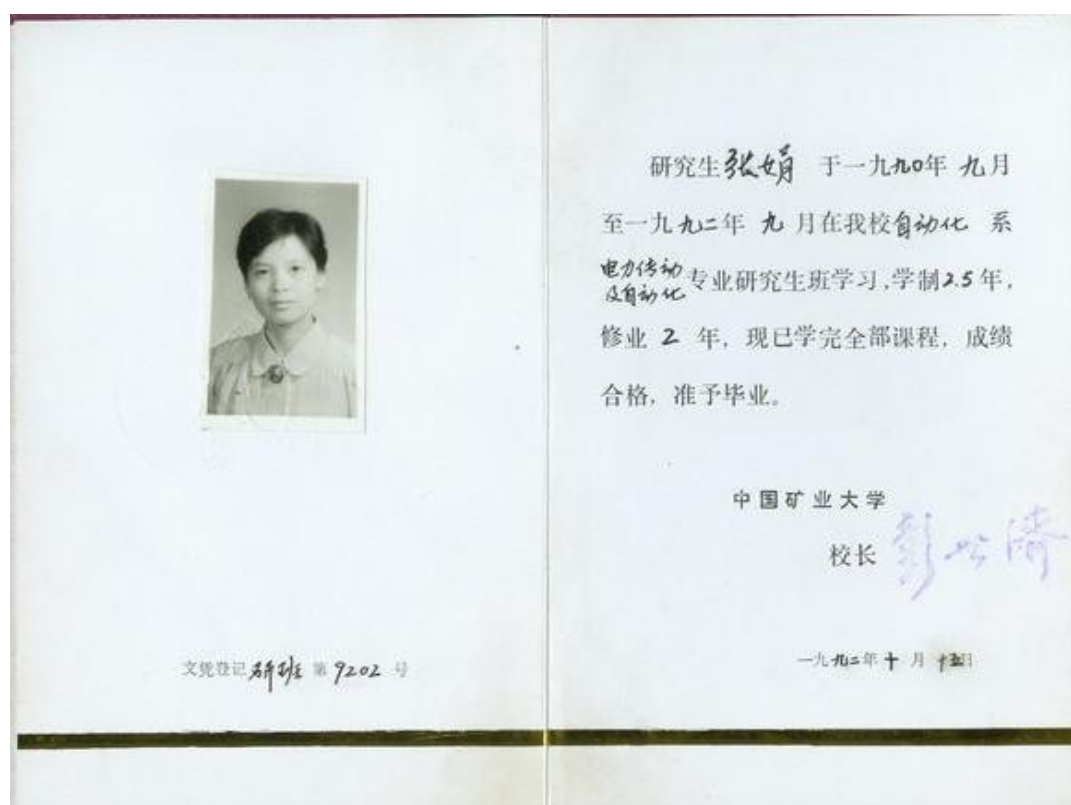 文凭登记研班第9202号
研究生张娟 于一九九0年 九月
至一九九二年 九 月在我校自动化 系
电力传动
及自动化专业研究生班学习,学制2.5年,
修业 2 年，现已学完全部课程，成绩
合格，准予毕业。
中国矿业大学
校长 彭世济
一九九二年十月十五日